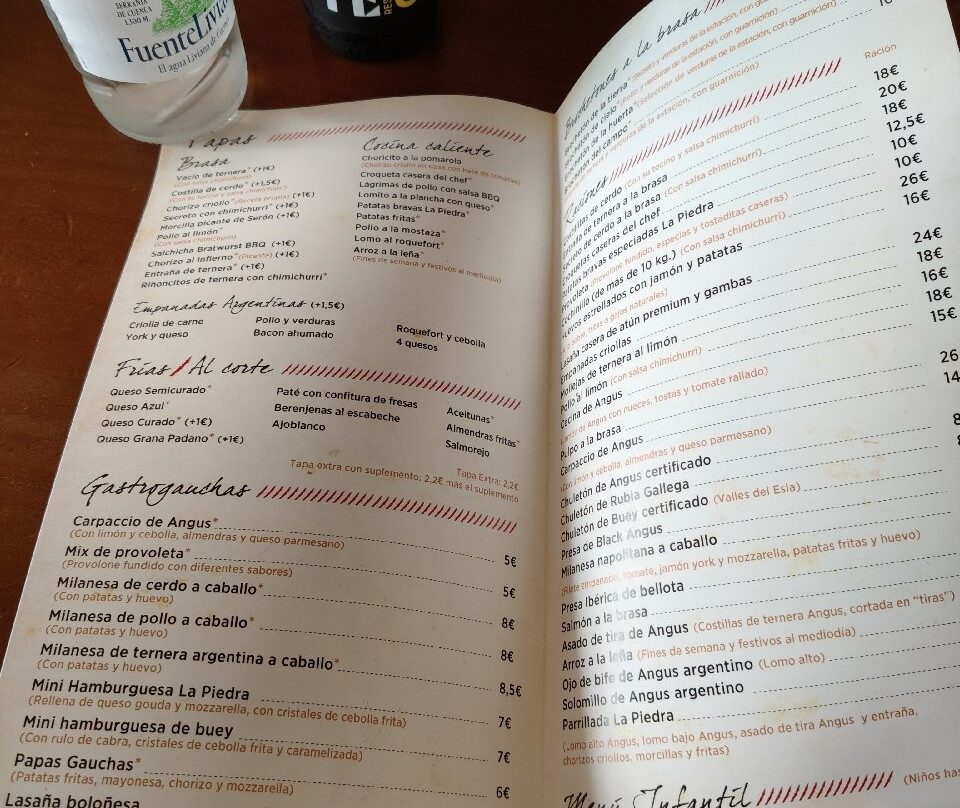 SERRANÍA
DE CUENCA
1.300 M
FuenteLivia
El agua Liviana de
RES
Tapas
Brasa
Vacío de ternera* (+1€)
(Con salsa chimichurri)
Costilla de cerdo* (+1,5€)
(Con su tocino y salsa chimichurri)
Chorizo criollo* (Receta propia) (+1€)
Secreto con chimichurri* (+1€)
Morcilla picante de Serón (+1€)
Pollo al limón*
(Con salsa chimichurri)
Salchicha Bratwurst BBQ (+1€)
Chorizo al Infierno* (Picante) (+1€)
Entraña de ternera* (+1€)
Riñoncitos de ternera con chimichurri*
Cocina caliente
Choricito a la pomarola
(Chorizo criollo en salsa con base de tomate)
Croqueta casera del chef*
Lágrimas de pollo con salsa BBQ
Lomito a la plancha con queso*
Patatas bravas La Piedra*
Patatas fritas*
Pollo a la mostaza*
Lomo al roquefort*
Arroz a la leña*
(Fines de semana y festivos al mediodía)
Empanadas Argentinas (+1,5€)
Criolla de carne
York y queso
Pollo y verduras
Bacon ahumado
Roquefort y cebolla
4 quesos
Frías / Al corte
Queso Semicurado*
Queso Azul*
Queso Curado* (+1€)
Queso Grana Padano* (+1€)
Paté con confitura de fresas
Berenjenas al escabeche
Ajoblanco
Aceitunas*
Almendras fritas*
Salmorejo
Tapa Extra: 2,2€
Tapa extra con suplemento: 2,2€ más el suplemento
Gastrogauchas
Carpaccio de Angus* 5€
(Con limón y cebolla, almendras y queso parmesano)
Mix de provoleta* 5€
(Provolone fundido con diferentes sabores)
Milanesa de cerdo a caballo* 8€
(Con patatas y huevo)
Milanesa de pollo a caballo* 8€
(Con patatas y huevo)
Milanesa de ternera argentina a caballo* 8,5€
(Con patatas y huevo)
Mini Hamburguesa La Piedra 7€
(Rellena de queso gouda y mozzarella, con cristales de cebolla frita)
Mini hamburguesa de buey 7€
(Con rulo de cabra, cristales de cebolla frita y caramelizada)
Papas Gauchas* 6€
(Patatas fritas, mayonesa, chorizo y mozzarella)
Lasaña boloñesa
a la brasa
de la tierra* (Secreto y verduras de la estación, con guarnición)
del cielo* (Pollo y verduras de la estación, con guarnición)
de la huerta* (Selección de verduras de la estación, con guarnición)
del campo*
y verduras de la estación, con guarnición)
Raciones
Ración
de cerdo (Con su tocino y salsa chimichurri) 18€
de ternera a la brasa 20€
Secreto de cerdo a la brasa (Con salsa chimichurri) 18€
caseras del chef 12,5€
bravas especiadas La Piedra 10€
Provoleta (Provolone fundido, especias y tostaditas caseras) 10€
Cochinillo (de más de 10 kg.) (Con salsa chimichurri) 26€
Huevos estrellados con jamón y patatas 16€
fritas o gajos naturales)
Lasaña casera de atún premium y gambas 24€
Empanadas criollas 18€
Mollejas de ternera al limón 16€
Pollo al limón (Con salsa chimichurri) 18€
Cecina de Angus 15€
de Angus con nueces, tostas y tomate rallado)
Pulpo a la brasa 26
Carpaccio de Angus 14
(Con limón y cebolla, almendras y queso parmesano)
Chuletón de Angus certificado
Chuletón de Rubia Gallega
Chuletón de Buey certificado (Valles del Esla)
Presa de Black Angus
Milanesa napolitana a caballo
(Filete empanado, tomate, jamón york y mozzarella, patatas fritas y huevo)
Presa Ibérica de bellota
Salmón a la brasa
Asado de tira de Angus (Costillas de ternera Angus, cortada en “tiras”)
Arroz a la leña (Fines de semana y festivos al mediodía)
Ojo de bife de Angus argentino (Lomo alto)
Solomillo de Angus argentino
Parrillada La Piedra
(Lomo alto Angus, lomo bajo Angus, asado de tira Angus y entraña,
chorizos criollos, morcillas y fritas)
Menú Infantil (Niños has